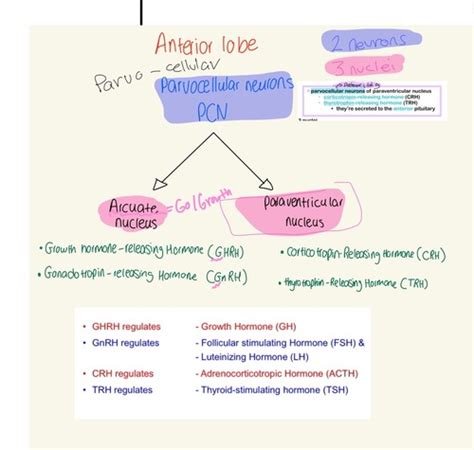 Anterior lobe
2 neurons
Parvo-cellular
3 nuclei
Parvocellular neurons
PCN
parvocellular neurons of paraventricular nucleus
corticotropin-releasing hormone (CRH)
thyrotrophin-releasing hormone (TRH)
• they're secreted to the anterior pituitary
Arcuate nucleus = Go/Growth
paraventricular nucleus
• Growth hormone-releasing Hormone (GHRH)
• Gonadotropin-releasing Hormone (GnRH)
• Corticotropin-Releasing Hormone (CRH)
• thyrotrophin-Releasing Hormone (TRH)
• GHRH regulates - Growth Hormone (GH)
• GnRH regulates - Follicular stimulating Hormone (FSH) &
- Luteinizing Hormone (LH)
• CRH regulates - Adrenocorticotropic Hormone (ACTH)
• TRH regulates - Thyroid-stimulating hormone (TSH)